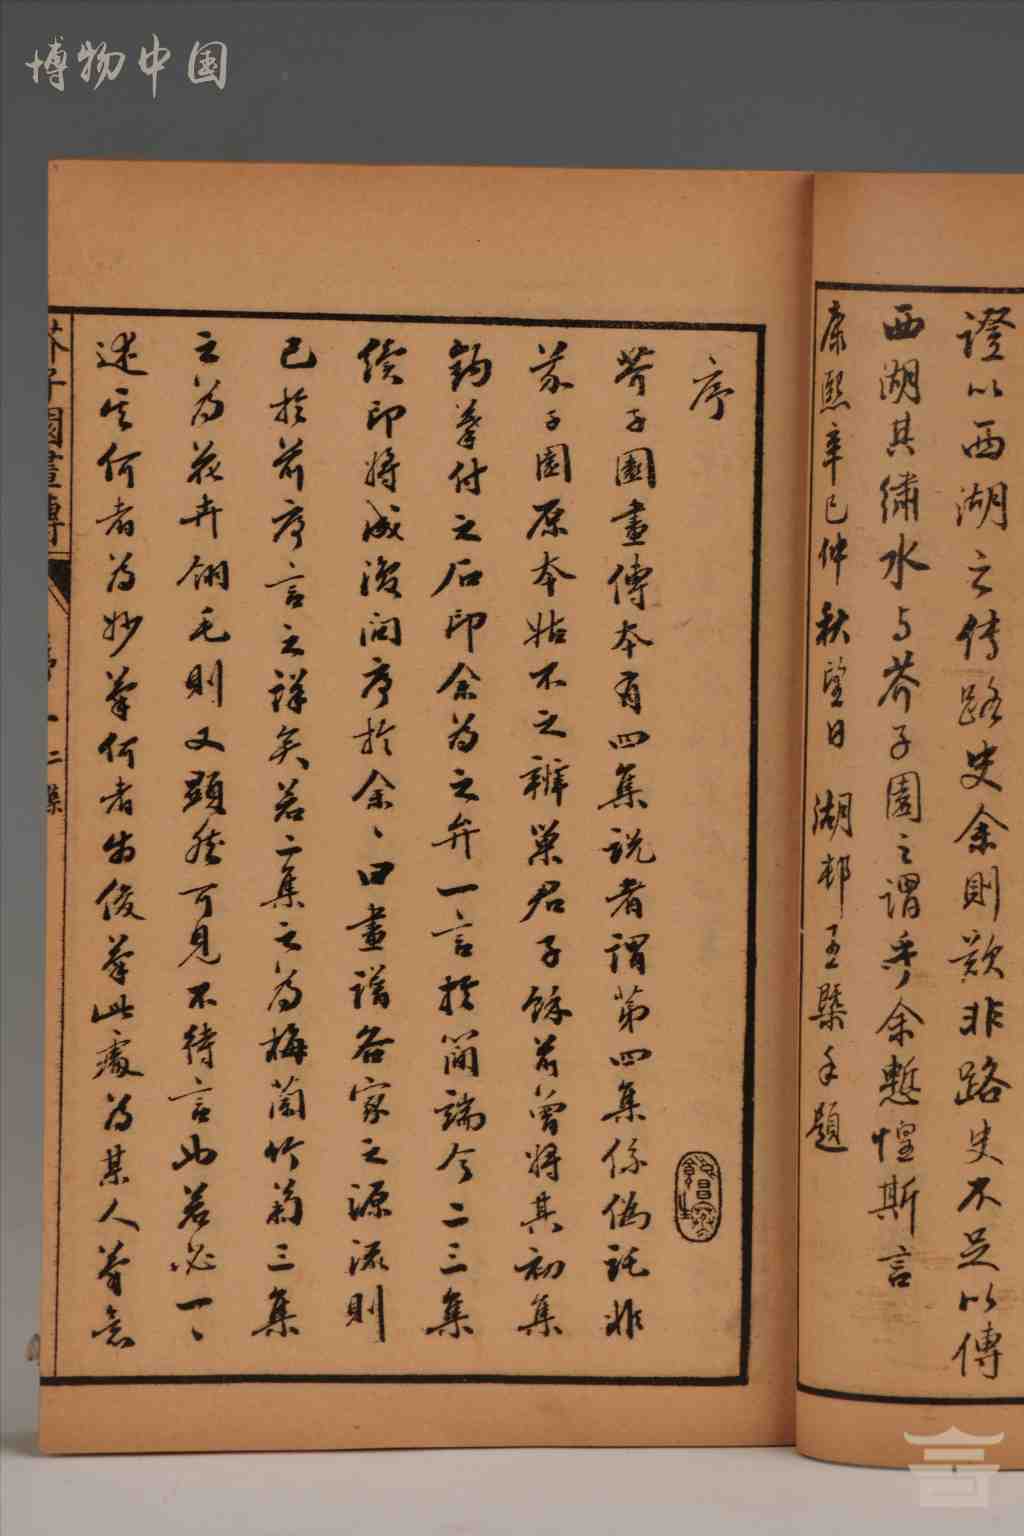 博物中国
證以西湖之傳路史余則歎非路史不足以傳
西湖其繡水与芥子園之謂乎余慙惶斯言
康熙辛巳仲秋望日 湖邨王槩手題
序
芥子園畫傳本有四集説者謂第四集係偽託非
芥子園原本姑不之辨巢君子餘前曾將其初集
鉤摹付之石印余為之弁一言於簡端今二三集
續印將成復問序於余、曰畫譜各家之源流則
已於前序言之詳矣若二集之為梅蘭竹菊三集
之為花卉翎毛則又顯然可見不待言也若必一、
述其何者為妙筆何者為後筆此處為某人筆意
芥子園畫傳
序 一 二集